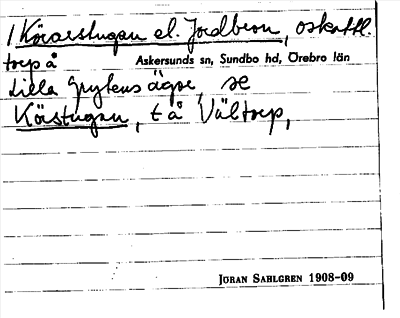 1 Körarestugan el. Jordbron, oskattl.
torp å Askersunds sn, Sundbo hd, Örebro län
Lilla Grytens ägor, se
Körstugan, t å Vältorp,
JÖRAN SAHLGREN 1908-09